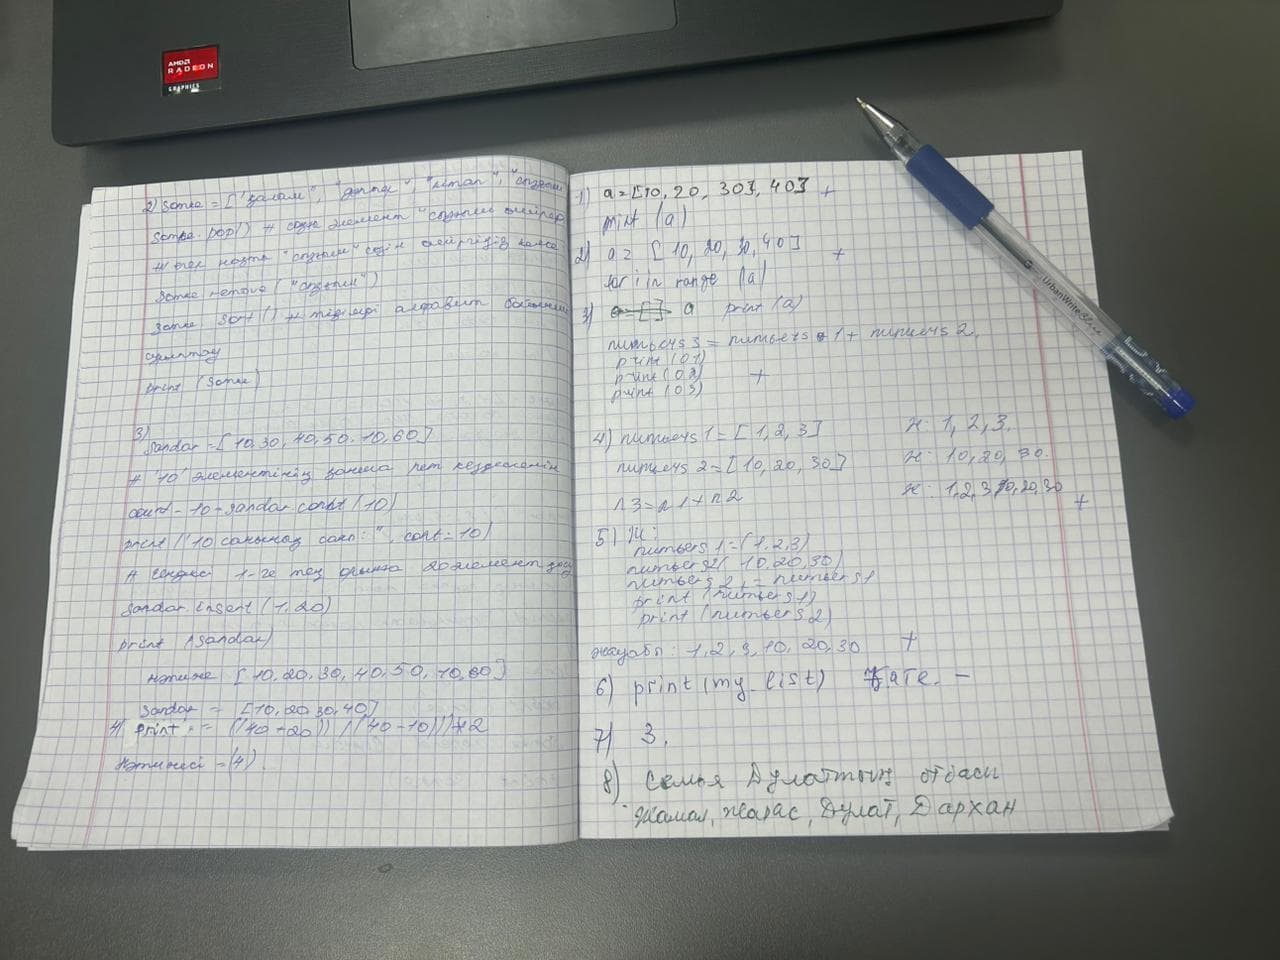 AMD
RADEON
GRAPHICS
UrbanWrite
2) Somke = ["қалам", "дәптер", "кітап", "сызғыш
Somke.pop() # соңғы элемент "сызғыш өшіріледі
# егер нақты "сызғыш" сөзін өшіргіңіз келсе
Somke remove ("сызғыш")
Somke Sort() # тізімді алфавит бойынша
сұрыптау
print (Somke)
3)
Sandar = [10,30,40,50.10,60]
# '10' элементінің қанша рет кездесетінін
count-10=sandar cont (10)
print ('10 санының саны: ", cont=10)
# индексі 1-ге тең орынға 20 элемент қосу
Sandar.insert (1,20)
print (Sandar)
нәтиже [10,20,30,40,50,10,60]
Sandar = [10,20,30,40]
4) print = ((40+20)) /(40-10)))*2
Нәтижесі =(4).
1) a=[10,20,30},40] +
print (a)
2) a= [10,20,30,40] +
for i in range (a)
3) a print (a)
numbers3 = numbers 1 + numbers 2.
print (01)
print (02) +
print (03)
4) numbers1 = [1,2,3] Н: 1,2,3.
numbers 2 = [10,20,30] Н: 10,20,30.
n3=n1+n2 Н: 1,2,3,10,20,30 +
5) Ж:
numbers 1 =(1,2,3)
numbers2( 10,20,30)
numbers 2 ,= numbers1
print (numbers1)
print (numbers2)
жауабы: 1,2,3,10,20,30 +
6) print (my_list) Қате. -
7) 3.
8) Семья Дулаттың отбасы
Жамал, Жарас, Дулат, Дархан